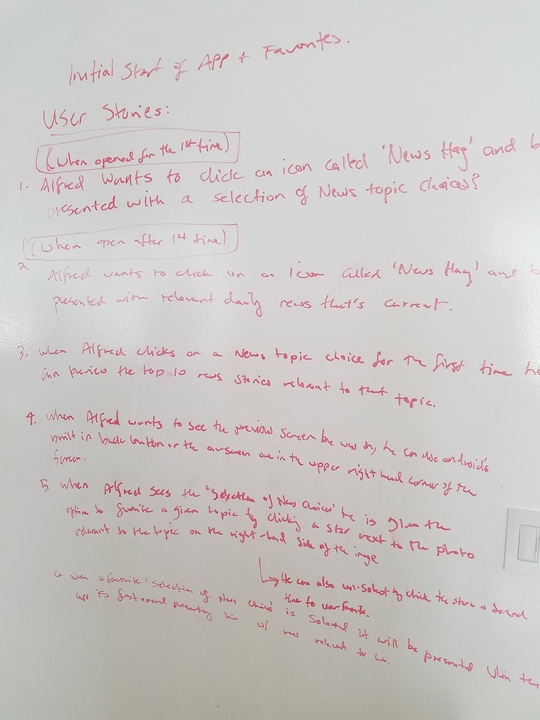 Initial Start of App + Favorites.
User Stories:
(When opened for the 1st time)
1. Alfred wants to click an icon called 'News Hag' and b
presented with a selection of News topic choices?
(When open after 1st time)
2. Alfred wants to click on an icon called 'News Hag' and b
presented with relevant daily news that's current.
3. When Alfred clicks on a News topic choice for the first time he
can preview the top 10 news stories relevant to that topic.
4. When Alfred wants to see the previous screen he was on, he can use android's
built in back button or the onscreen one in the upper right hand corner of the
screen.
5. When Alfred sees the "Selection of News Choices" he is given the
option to favorite a given topic by clicking a star next to the photo
relevant to the topic on the right-hand side of the image
He can also un-select by click the star a second
time to unfavorite.
a favorite 'Selection of News Choice' is selected it will be presented when the
app is first presenting him w/ news relevant to